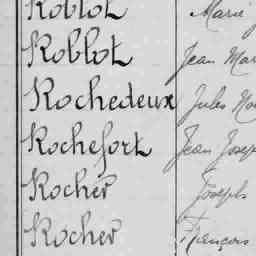 Koblot Marie
Koblot Jean Mar
Kochedeux Jules
Kochefort Jean Josep
Kocher Joseph
Kocher François